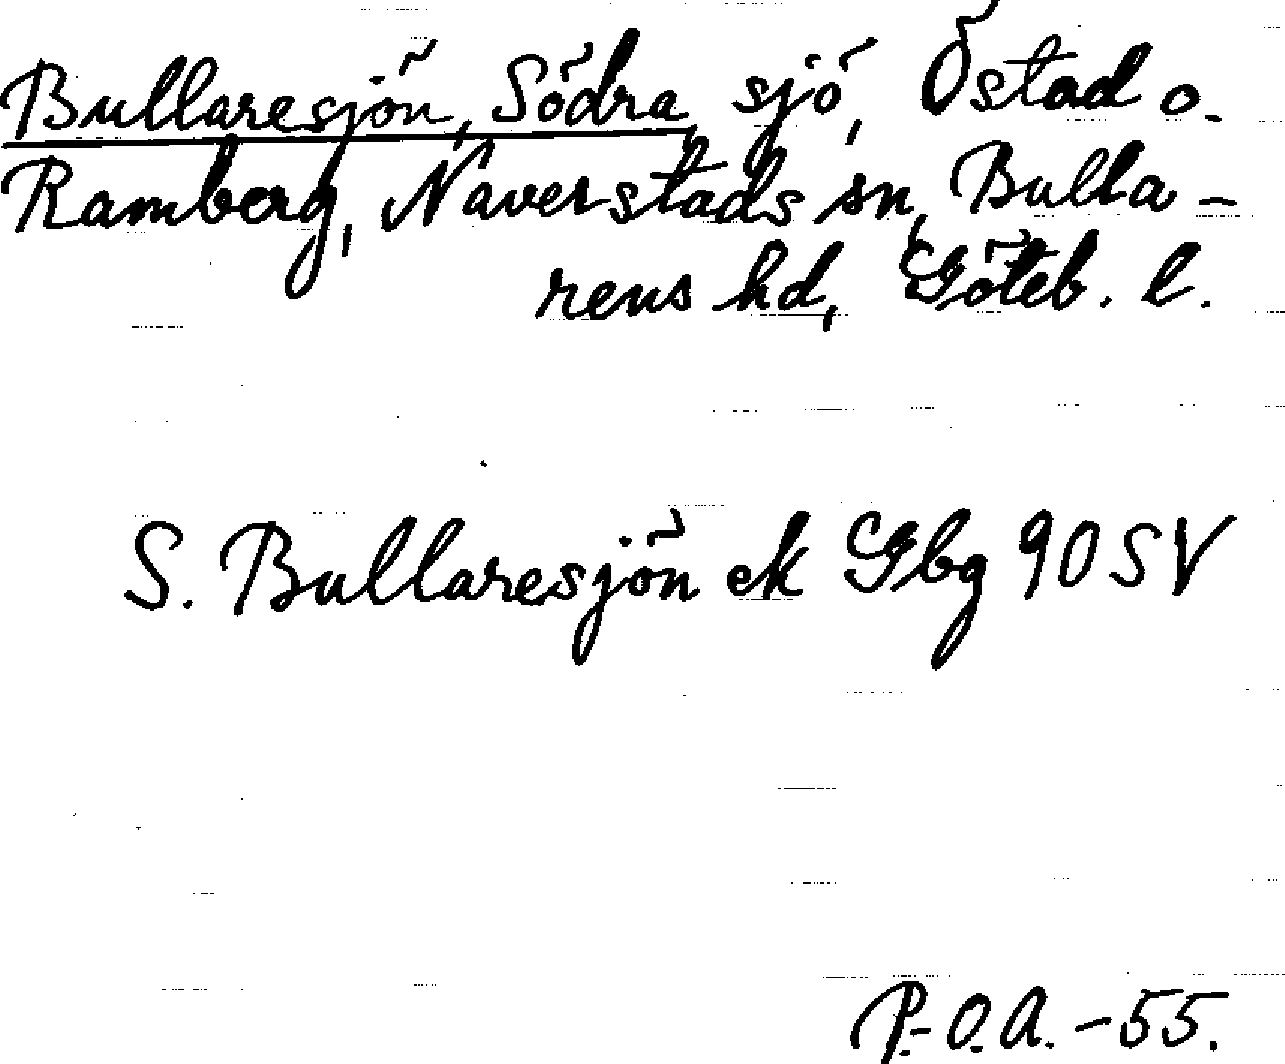 Bullaresjön, Södra, sjö, Östad o.
Ramberg, Naverstads sn, Bulla-
rens hd, Göteb. l.
S. Bullaresjön ek Gbg 90 SV
P.-O.A. -55.